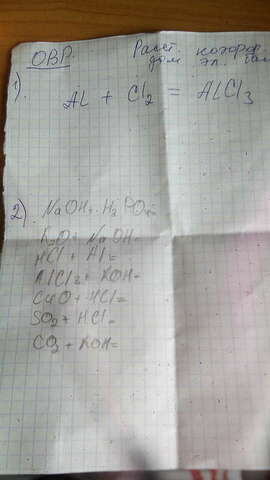 ОВР. Расст. коэфф.
эл.
1). Al + Cl2 = AlCl3
2). NaOH + H2PO4=
K2O + NaOH=
HCl + Al=
AlCl3 + KOH=
CuO + HCl=
SO2 + HCl=
CO2 + KOH=